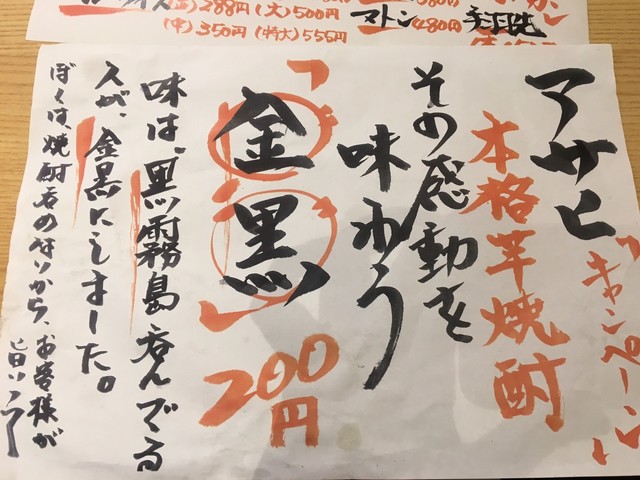 (大)500円
マトン 480円
(中)350円 (特大)555円
「キャンペーン」
アサヒ
本格芋焼酎
その感動を
味わう
「金黒」
200円
味は、黒霧島呑んでる
人が、金黒にしました。
ぼくは、焼酎呑のまいから、お客様が
旨いって